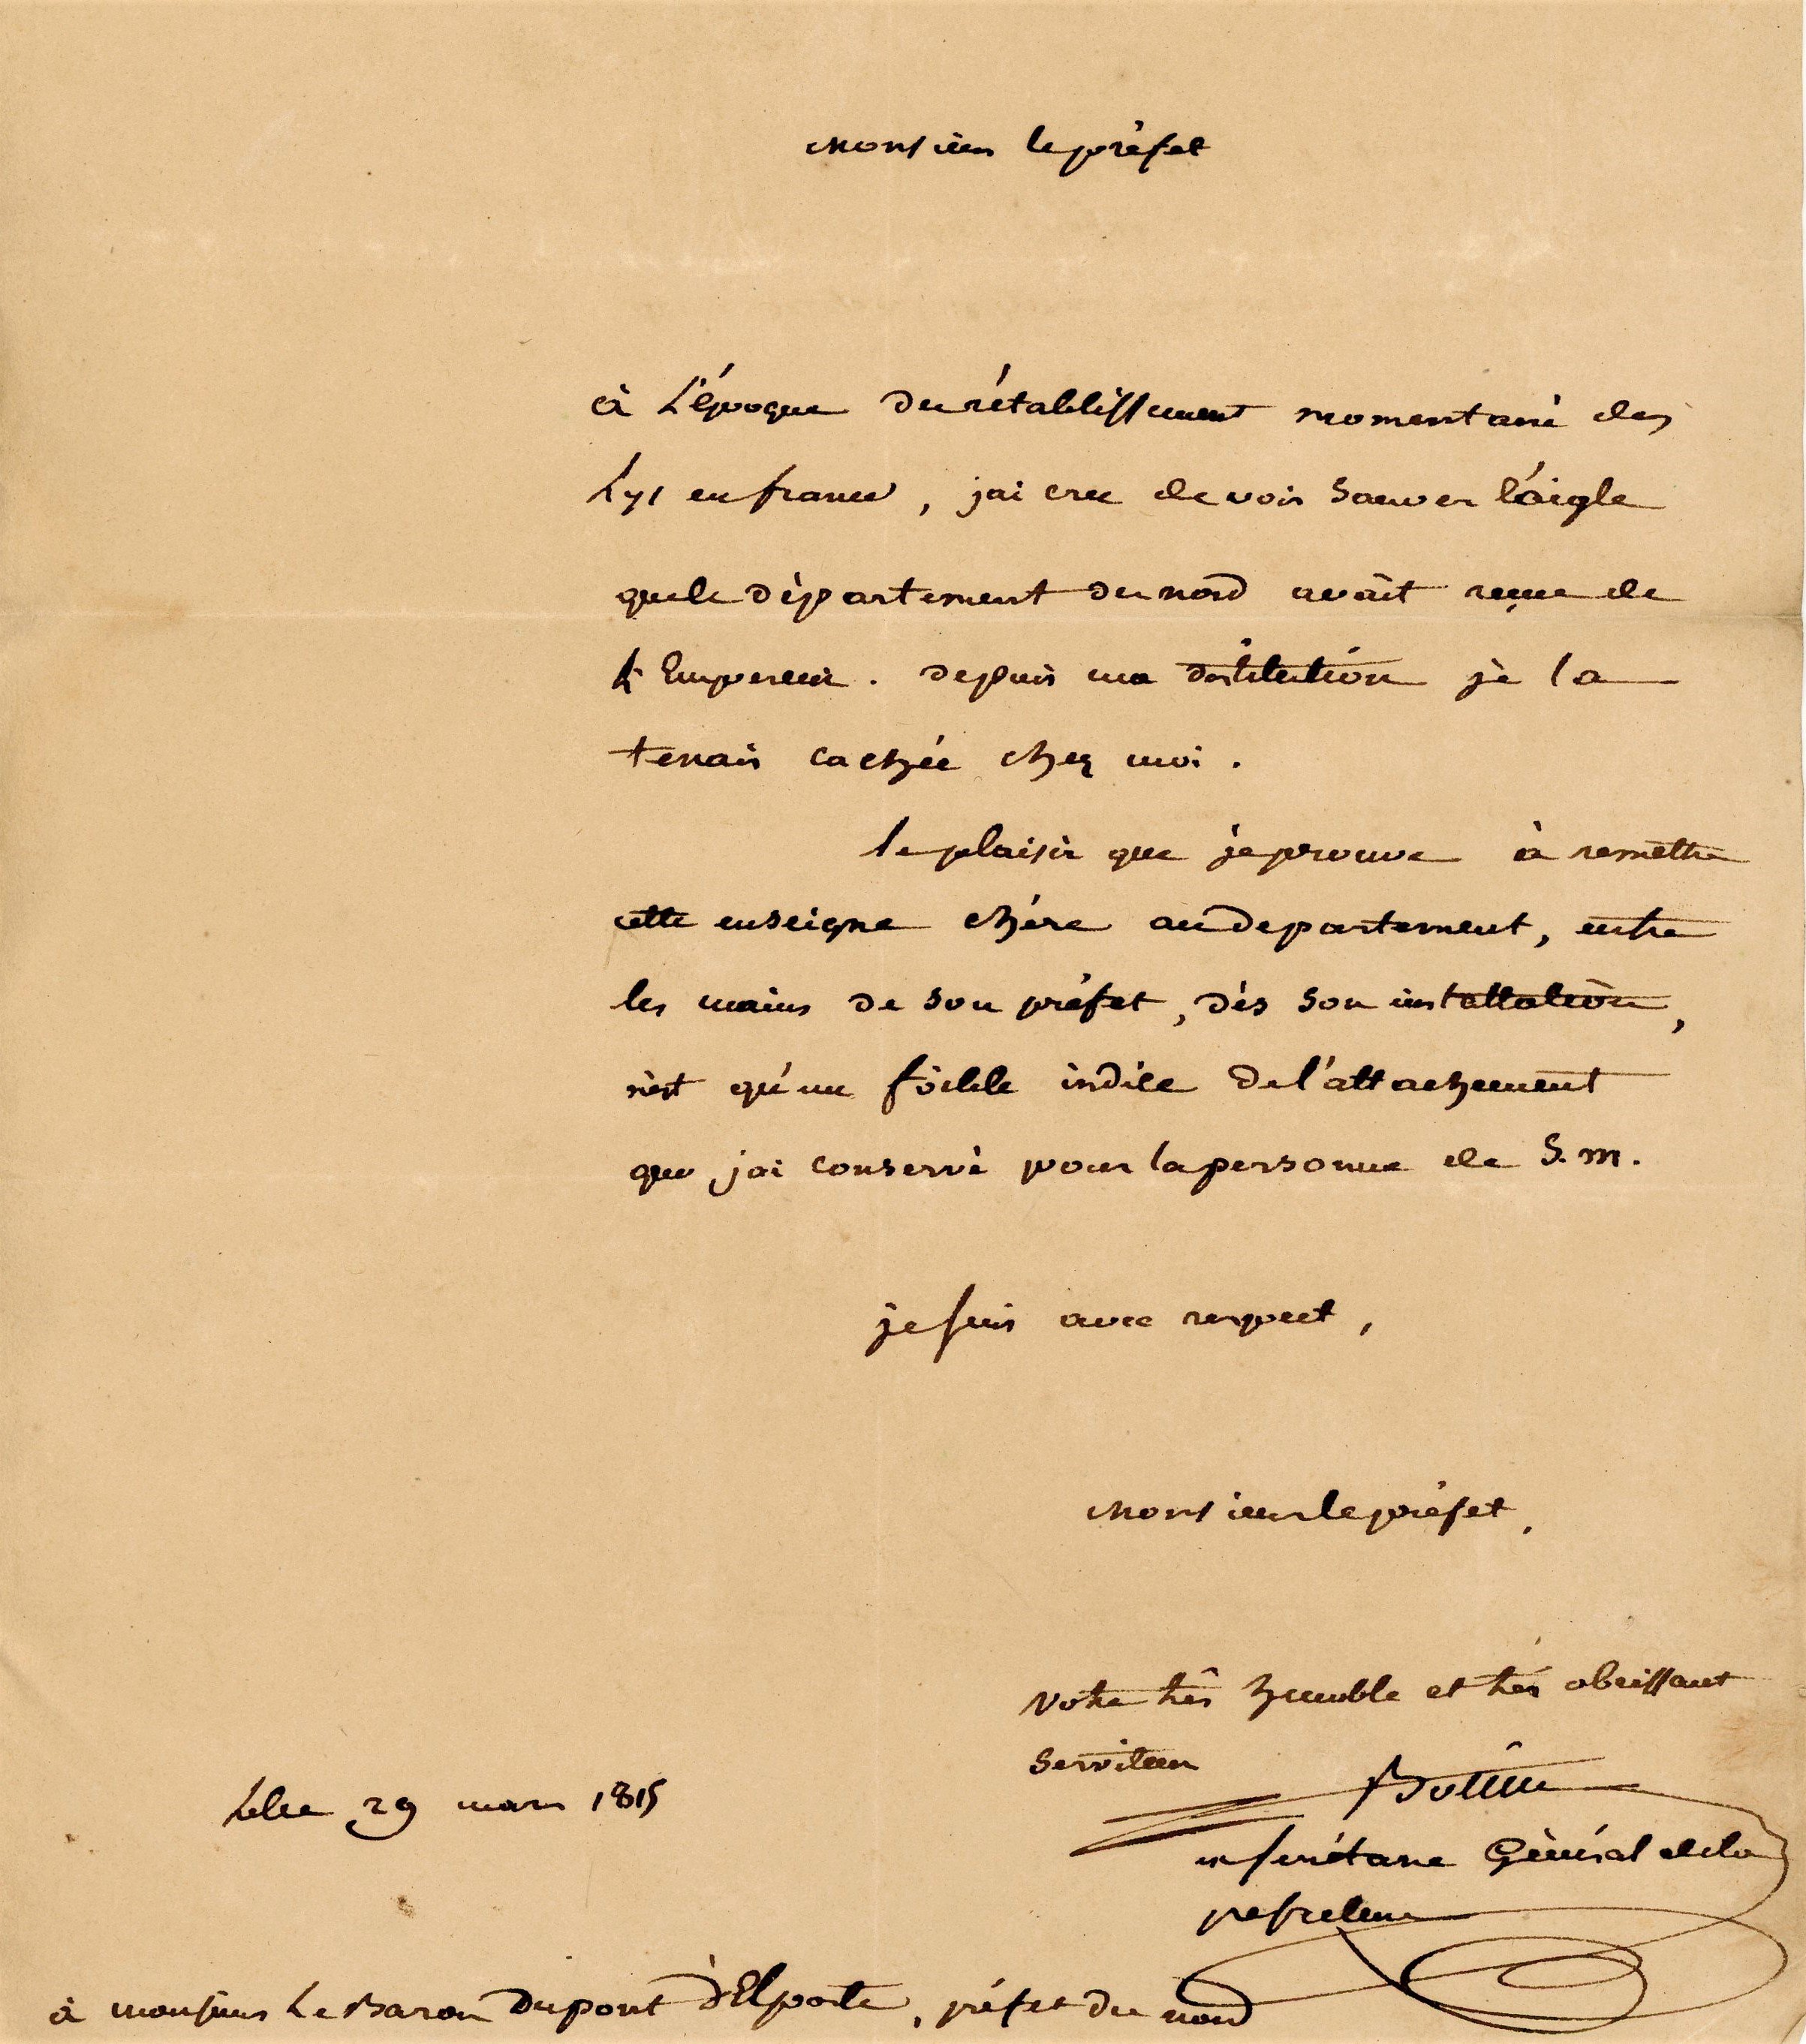 Monsieur le préfet
à L'époque du rétablissement momentané des
Lys en france, jai cru devoir sauver l'aigle
que le département du nord avait reçue de
L'Empereur. depuis ma destitution je la
tenais cachée chez moi.
le plaisir que jeprouve à remettre
cette enseigne chére au departement, entre
les mains de son préfet, dès son installation,
n'est qu'un foible indice de l'attachement
que jai conservé pour la personne de S. M.
je suis avec respect,
Monsieur le préfet,
Votre très humble et très obeissant
serviteur
Bottin
ex secrétaire Général de la
prefecture
Lille 29 mars 1815
à monsieur Le Baron Dupont d'Elporte, préfet du nord